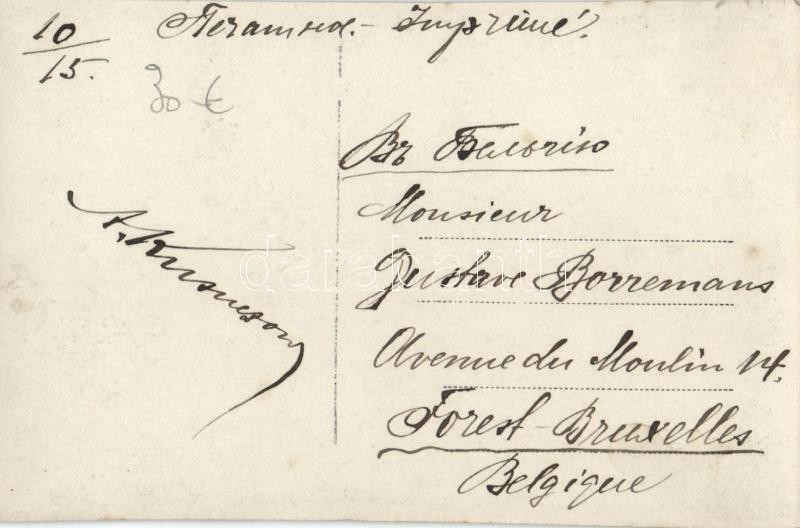 10
15.
Печатное. - Imprimé.
30 €
Въ Бельгію
Monsieur
Gustave Borremans
Avenue du Moulin 14.
Forest-Bruxelles
Belgique
darabanth.com